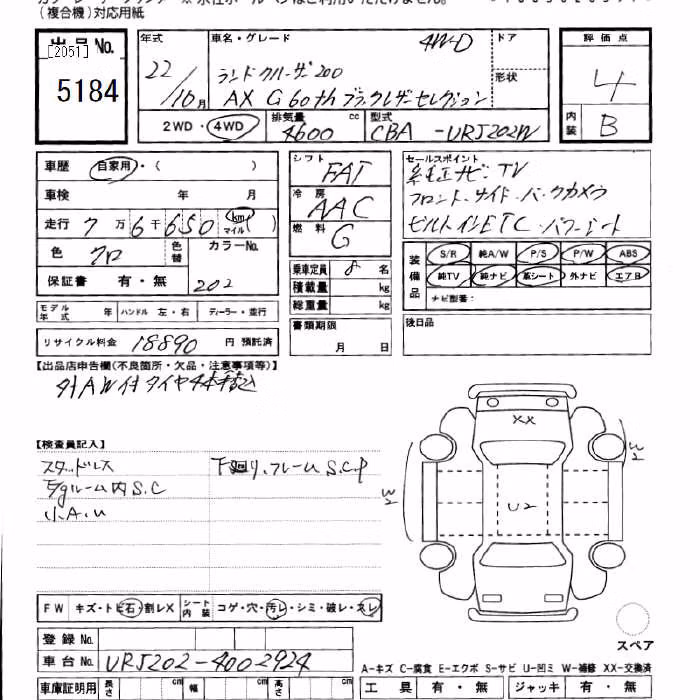 (複合機)対応用紙
出品No.
[2051]
5184
年式 車名・グレード 4WD ドア 評価点
22/10月 ランドクルーザー200 形状 4
AX G 60th ブラックレザーセレクション
2WD・4WD 排気量 4600 cc 型式 CBA-URJ202W 内装 B
車歴 自家用・( ) シフト FAT セールスポイント
車検 年 月 冷房 AAC 純正ナビ・TV
走行 7万6千650 km マイル ( ) 燃料 G フロント・サイド・バックカメラ
ビルトインETC・パワーシート
色 クロ 色替 カラーNo. 202 乗車定員 8 名
装備品 S/R 純A/W P/S P/W ABS
純TV 純ナビ 革シート 外ナビ エアB
ナビ型番:
保証書 有・無 積載量 kg
総重量 kg
モデル年式 年 ハンドル 左・右 ディーラー・並行 書類期限 月 日 後日品
リサイクル料金 18890 円 預託済
【出品店申告欄(不良箇所・欠品・注意事項等)】
外AW付タイヤ4本積込
【検査員記入】
スタッドレス 下回り、フレームS.C.P
E/gルーム内S.C
小A.U
XX
U2
W2
W2
FW キズ・トビ石・割レX シート内装 コゲ・穴・汚レ・シミ・破レ・スレ
登録No.
車台No. URJ202-4002924
スペア
A-キズ C-腐食 E-エクボ S-サビ U-凹ミ W-補修 XX-交換済
車庫証明用 長さ cm 幅 cm 高さ cm 工具 有・無 ジャッキ 有・無